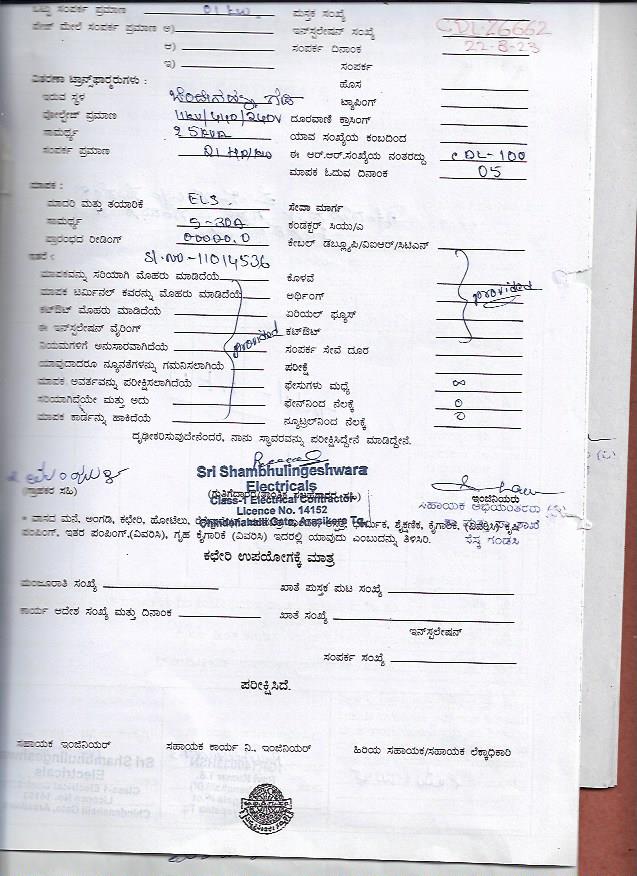 ಒಟ್ಟು ಸಂಪರ್ಕ ಪ್ರಮಾಣ 01 kw ಪುಸ್ತಕ ಸಂಖ್ಯೆ
ಮೇಲೆ ಸಂಪರ್ಕ ಪ್ರಮಾಣ ಅ) ಇನ್‌ಸ್ಟಲೇಷನ್ ಸಂಖ್ಯೆ CDL-26662
ಆ) ಸಂಪರ್ಕ ದಿನಾಂಕ 22-8-23
ಇ) ಸಂಪರ್ಕ
ವಿತರಣಾ ಟ್ರಾನ್ಸ್‌ಫಾರ್ಮರುಗಳು : ಹೊಸ
ಇರುವ ಸ್ಥಳ ಟ್ಯಾಪಿಂಗ್
ವೋಲ್ಟೇಜ್ ಪ್ರಮಾಣ 11KV/440/240V ದೂರವಾಣಿ ಕ್ರಾಸಿಂಗ್
ಸಾಮರ್ಥ್ಯ 25KVA ಯಾವ ಸಂಖ್ಯೆಯ ಕಂಬದಿಂದ
ಸಂಪರ್ಕ ಪ್ರಮಾಣ ಈ ಆರ್.ಆರ್.ಸಂಖ್ಯೆಯ ನಂತರದ್ದು CDL-100
ಮಾಪಕ ಓದುವ ದಿನಾಂಕ 05
ಮಾಪಕ :
ಮಾದರಿ ಮತ್ತು ತಯಾರಿಕೆ ಸೇವಾ ಮಾರ್ಗ
ಸಾಮರ್ಥ್ಯ 5-30A ಕಂಡಕ್ಟರ್ ಸಿಯು/ಎ
ಪ್ರಾರಂಭದ ರೀಡಿಂಗ್ 00000.0 ಕೇಬಲ್ ಡಬ್ಲ್ಯೂಪಿ/ವಿಐಆರ್/ಸಿಟಿಎನ್
ಇತರೆ : Sl.NO-11014536
ಮಾಪಕವನ್ನು ಸರಿಯಾಗಿ ಮೊಹರು ಮಾಡಿದೆಯೆ ಕೊಳವೆ
ಮಾಪಕ ಟರ್ಮಿನಲ್ ಕವರನ್ನು ಮೊಹರು ಮಾಡಿದೆಯೆ ಅರ್ಥಿಂಗ್ provided
ಕಟ್‌ಔಟ್ ಮೊಹರು ಮಾಡಿದೆಯೆ ಏರಿಯಲ್ ಫ್ಯೂಸ್
ಈ ಇನ್‌ಸ್ಟಲೇಷನ್ ವೈರಿಂಗ್ provided ಕಟ್‌ಔಟ್
ನಿಯಮಗಳಿಗೆ ಅನುಸಾರವಾಗಿದೆಯೆ ಸಂಪರ್ಕ ಸೇವೆ ದೂರ
ಯಾವುದಾದರೂ ನ್ಯೂನತೆಗಳನ್ನು ಗಮನಿಸಲಾಗಿಯೆ ಪರೀಕ್ಷೆ
ಮಾಪಕ ಅವರ್ತವನ್ನು ಪರೀಕ್ಷಿಸಲಾಗಿದೆಯೆ ಫೇಸುಗಳು ಮಧ್ಯೆ ∞
ಸರಿಯಾಗಿದೆಯೇ ಮತ್ತು ಅದು ಫೇಸ್‌ನಿಂದ ನೆಲಕ್ಕೆ 0
ಮಾಪಕ ಕಾರ್ಡನ್ನು ಹಾಕಿದೆಯೆ ನ್ಯೂಟ್ರಲ್‌ನಿಂದ ನೆಲಕ್ಕೆ 0
ದೃಢೀಕರಿಸುವುದೇನೆಂದರೆ, ನಾನು ಸ್ಥಾವರವನ್ನು ಪರೀಕ್ಷಿಸಿದ್ದೇನೆ ಮಾಡಿದ್ದೇನೆ.
Sri Shambhulingeshwara
Electricals
Class-1 Electrical Contractor
Licence No. 14152
Chindenahalli Gate, Arasikere Tq.
(ಗ್ರಾಹಕರ ಸಹಿ) ಇಂಜಿನಿಯರು
ಸಹಾಯಕ ಅಭಿಯಂತರರು
* ವಾಸದ ಮನೆ, ಅಂಗಡಿ, ಕಛೇರಿ, ಹೋಟೆಲು, ಧಾರ್ಮಿಕ, ಶೈಕ್ಷಣಿಕ, ಕೈಗಾರಿಕೆ, ಕೃಷಿ
ಪಂಪಿಂಗ್, ಇತರ ಪಂಪಿಂಗ್.(ವಿವರಿಸಿ), ಗೃಹ ಕೈಗಾರಿಕೆ (ವಿವರಿಸಿ) ಇದರಲ್ಲಿ ಯಾವುದು ಎಂಬುದನ್ನು ತಿಳಿಸಿರಿ.
ಕಛೇರಿ ಉಪಯೋಗಕ್ಕೆ ಮಾತ್ರ
ಮಂಜೂರಾತಿ ಸಂಖ್ಯೆ ಖಾತೆ ಪುಸ್ತಕ ಪುಟ ಸಂಖ್ಯೆ
ಕಾರ್ಯ ಆದೇಶ ಸಂಖ್ಯೆ ಮತ್ತು ದಿನಾಂಕ ಖಾತೆ ಸಂಖ್ಯೆ
ಇನ್‌ಸ್ಟಲೇಷನ್
ಸಂಪರ್ಕ ಸಂಖ್ಯೆ
ಪರೀಕ್ಷಿಸಿದೆ.
ಸಹಾಯಕ ಇಂಜಿನಿಯರ್ ಸಹಾಯಕ ಕಾರ್ಯ ನಿ., ಇಂಜಿನಿಯರ್ ಹಿರಿಯ ಸಹಾಯಕ/ಸಹಾಯಕ ಲೆಕ್ಕಾಧಿಕಾರಿ